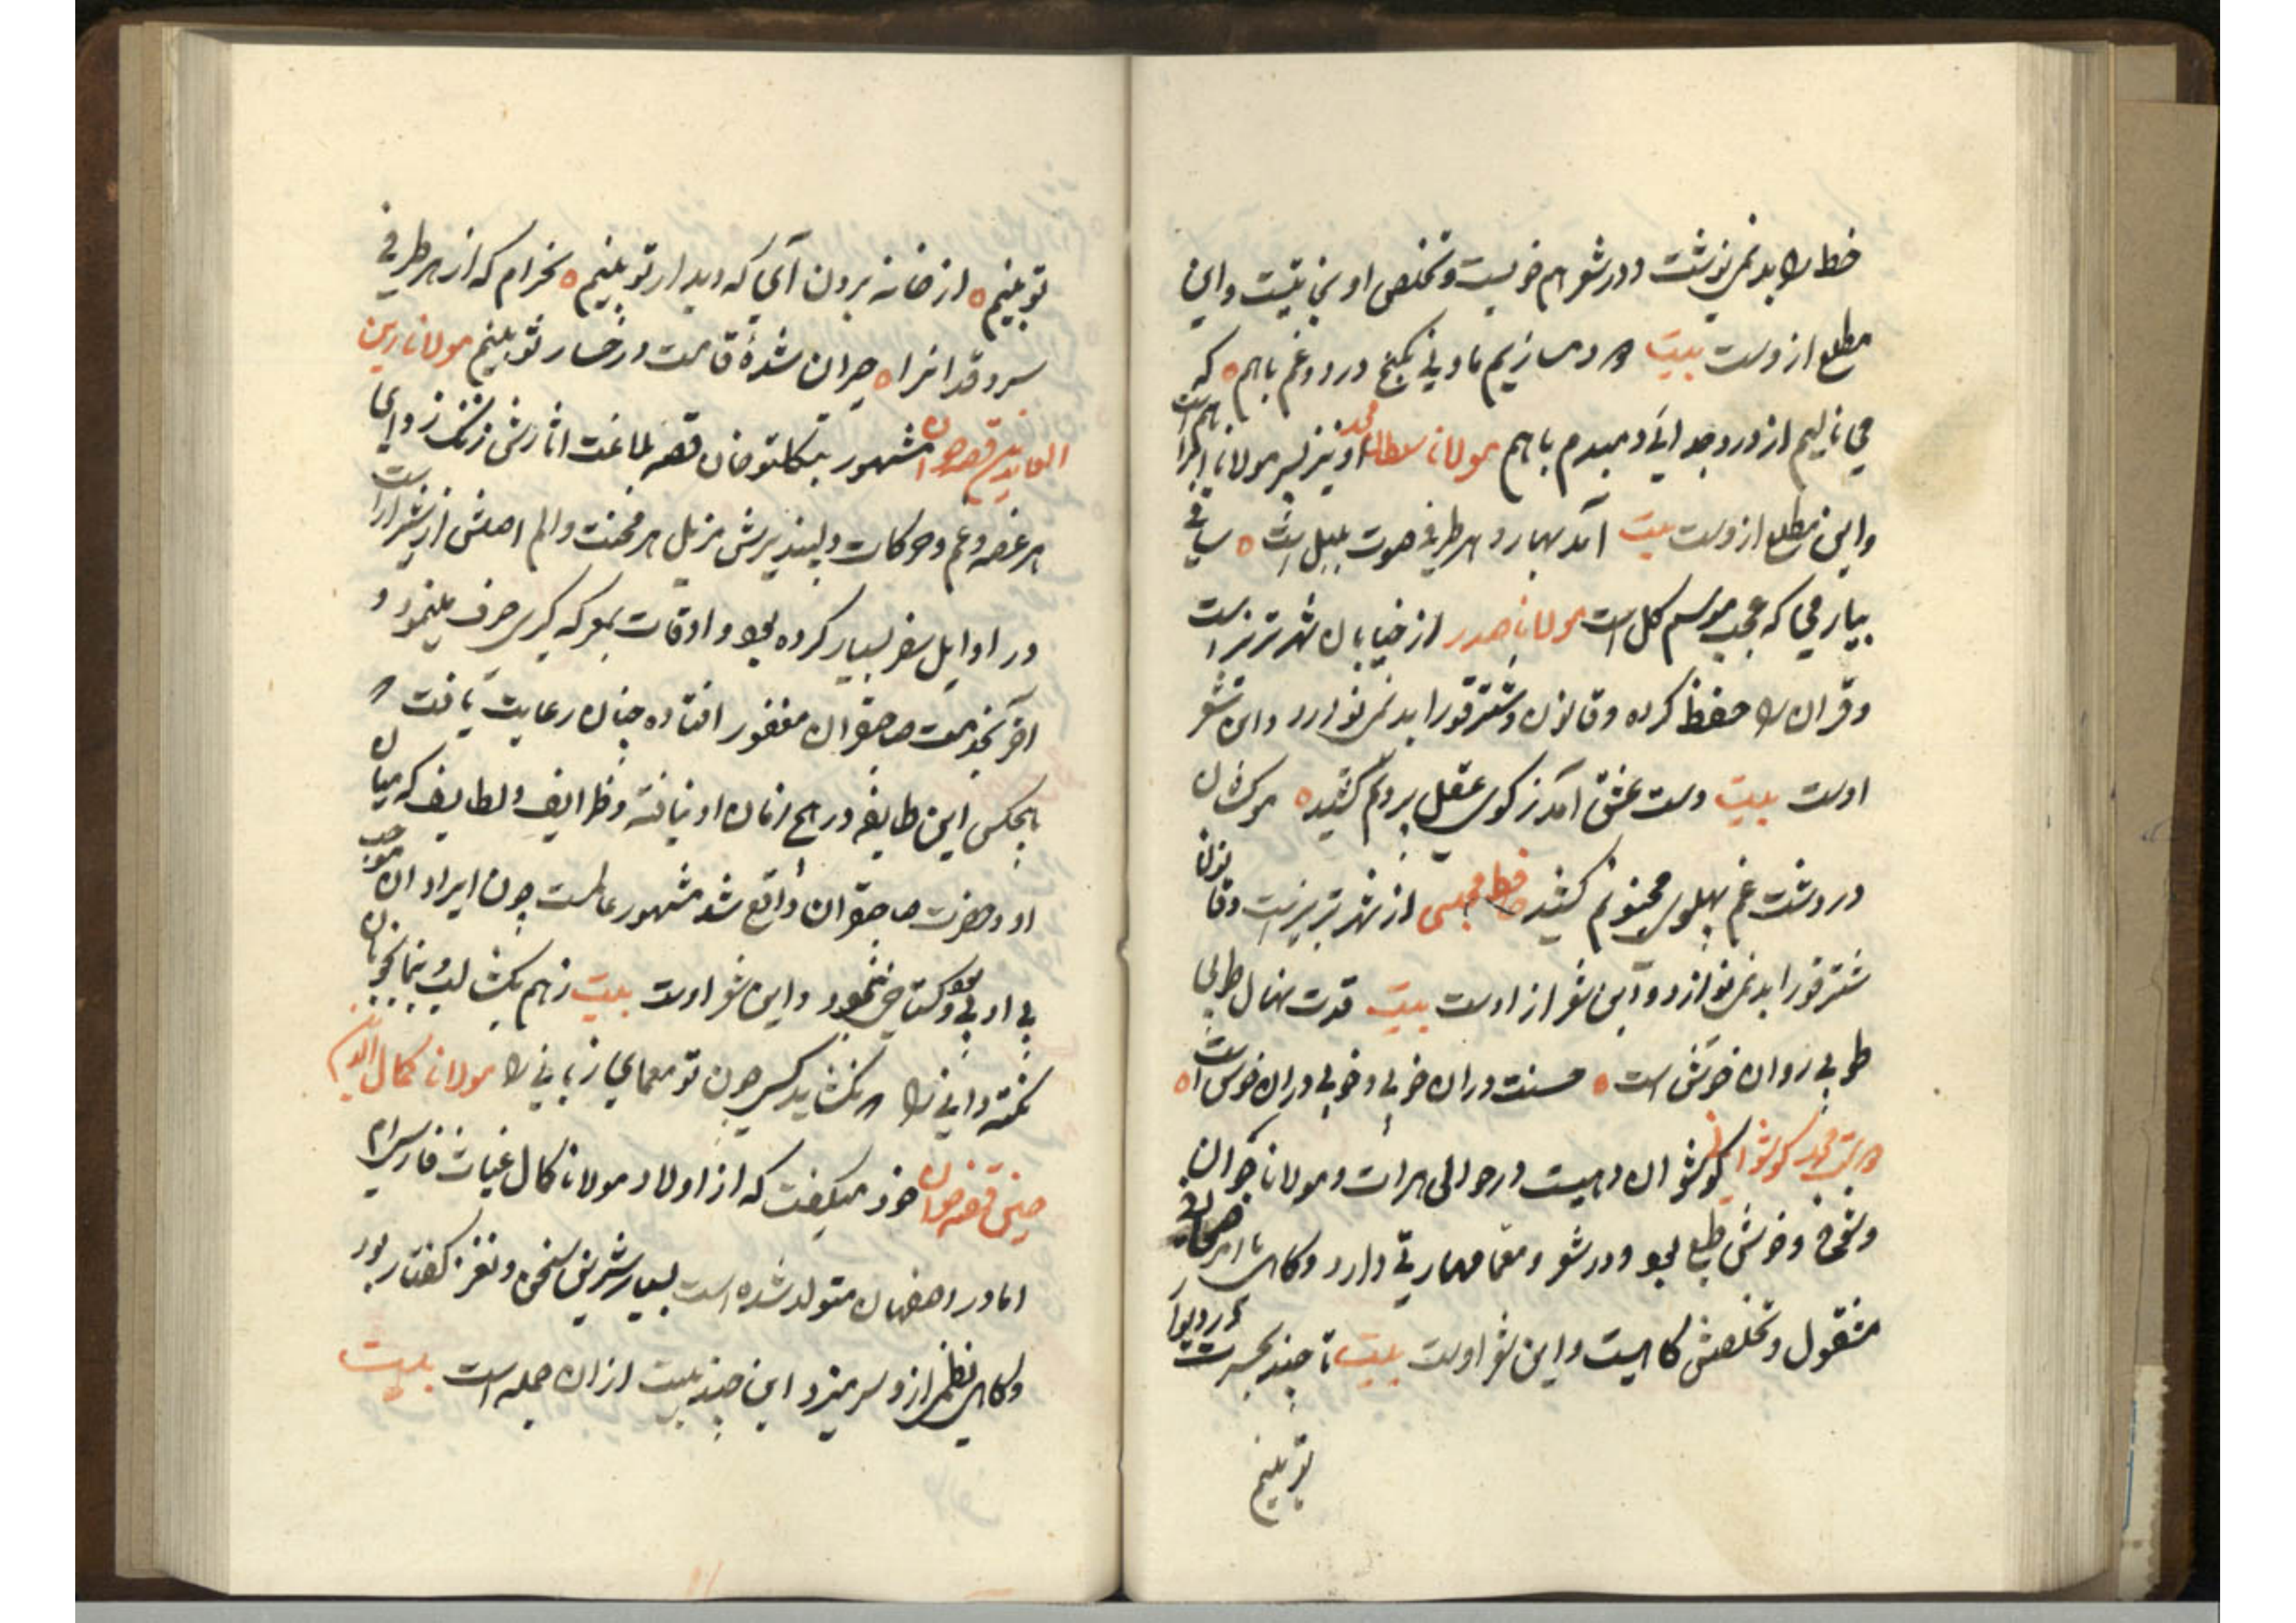 خط را بد نمی نوشت و در شعر هم خوبست و تخلص او نیتیست و این
مطلع ازوست بیت دمسازیم ما و نی بکنج درد و غم با هم ه که
می نالیم از درد جدایی دمبدم با هم مولانا سلطان محمد او نیز پسر مولانا
و این مطلع ازوست بیت آمد بهار و هر طرفی صوت بلبل است ه ساقی
بیار می که عجب موسم گل است مولانا صدر از خیابان شهر تبریز است
و قران را حفظ کرده و قانون و شترقو را بد نمی نوازد و این شعر
اوست بیت دست عشق آمد ز کوی عقل بیرونم کشید ه موکشان
در دشت غم پهلوی مجنونم کشید حافظ مجلسی از شهر تبریزست و قانون
شترقو را بد نمی نوازد و این شعر از اوست بیت قدت نهال طوبی
طوبی روان خوش است ه حسنت دران خوبی و خوبی دران خوش است ه
محمد کوشوانی کوشوان دهیست در حوالی هرات و مولانا جوان
و شوخ و خوش طبع بود و در شعر و معما مهارتی دارد و کاهی با
مشغول و تخلصش کاهیست و این شعر اوست بیت تا چند بحسرت در و دیوار
تو بینم
تو بینم ه از خانه برون آی که دیدار تو بینم ه بخرام که از هر طرفی
سرو قد افرا ه حیران شدهٔ قامت و رخسار تو بینم مولانا زین
العابدین قصه خوان مشهور بتکلتو خان قصه بلاغت اثارش زنگ زدای
هر غصه و غم و حرکات دلپذیرش مزیل هر محنت و الم اصلش از شیراز است
در اوایل سفر بسیار کرده بود و اوقات بمعرکه گیری صرف مینمود و
اخر بخدمت صاحبقران مغفور افتاده چنان رعایت یافت که
هیچکس این طایفه در هیچ زمان او نیافته و ظرایف و لطایف که میان
او و حضرت صاحبقران واقع شد مشهور عالمست چون ایراد ان موجب
بی ادبی و گستاخی بود ننمود و این شعر اوست بیت ز هم بگشا لب و بنما بخوبان
نکته دانی را که نگشاید کسی چون تو معمای زبانی را مولانا کمال الدین
حسین قصه خوان خود میگفت که از اولاد مولانا کمال غیاث فارسی ام
اما در اصفهان متولد شده است بسیار شیرین سخن و نغز گفتار بود
و کاهی نظمی ازو سر میزد این چند بیت از ان جمله است بیت